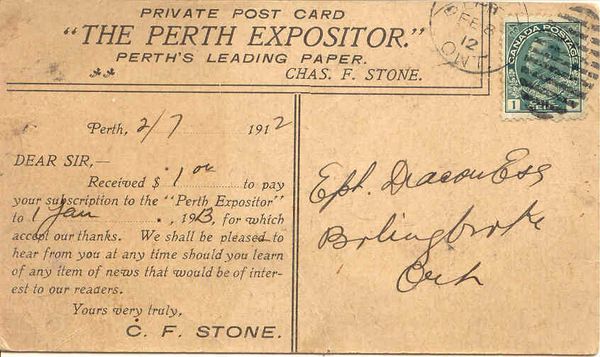 PRIVATE POST CARD
"THE PERTH EXPOSITOR."
PERTH'S LEADING PAPER.
CHAS. F. STONE.
FE 8
12
ONT
CANADA POSTAGE
1
Perth, 2/7 1912
DEAR SIR,—
Received $ 1 00 to pay
your subscription to the "Perth Expositor"
to 1 Jan , 1913, for which
accept our thanks. We shall be pleased to
hear from you at any time should you learn
of any item of news that would be of inter-
est to our readers.
Yours very truly,
C. F. STONE.
Eph. Deacon Esq
Bolingbroke
Ont